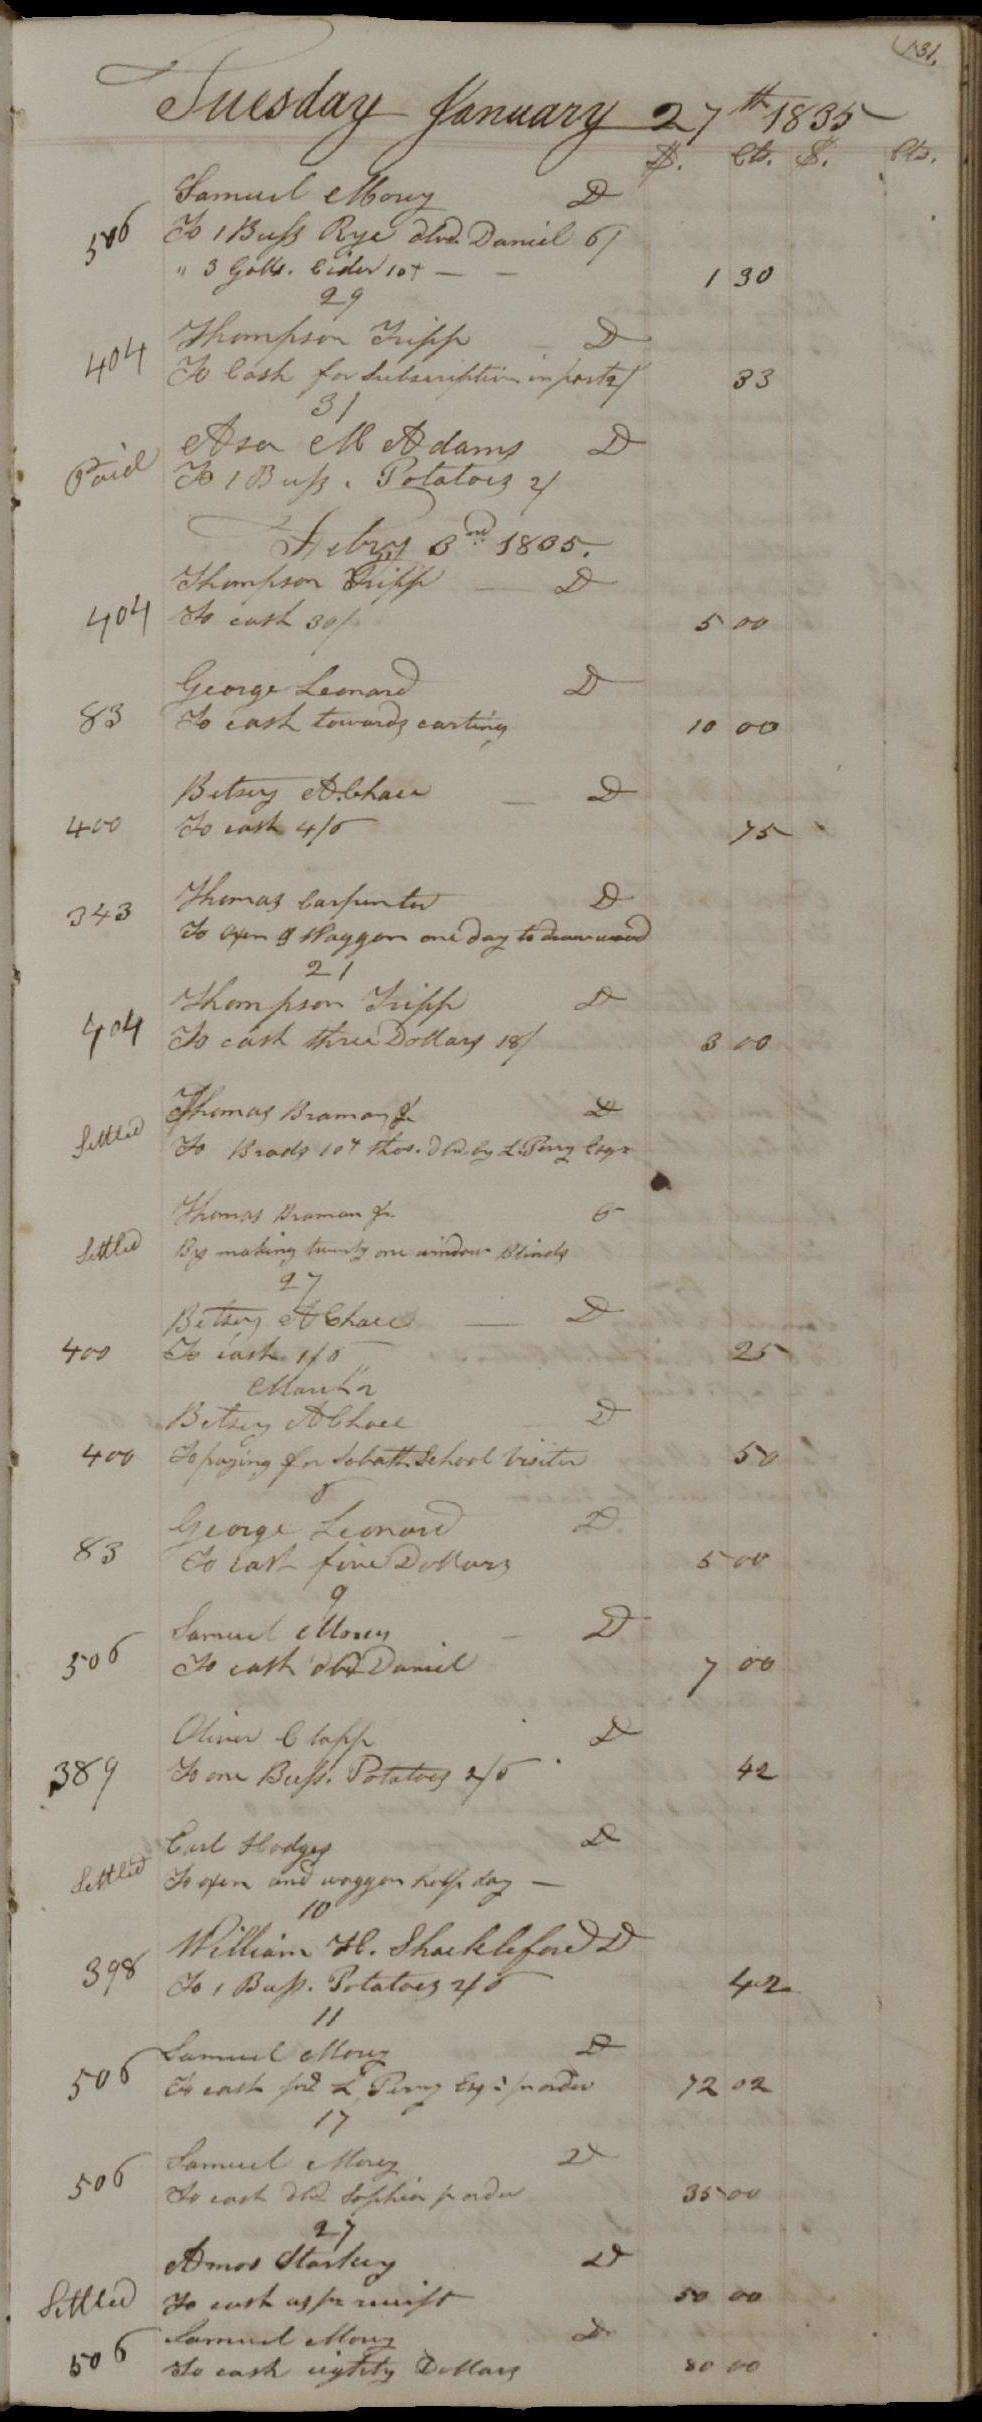 131.
Tuesday January 27th 1835
$. Cts. $. Cts.
Samuel Morey D
506 To 1 Buss Rye dlvd. Daniel 6/
" 3 Galls. Cider 10+ — — 1 30
29
Thompson Tripp — D
404 To Cash for Subscription in part 2/ 33
31
Asa M Adams D
Paid To 1 Buss. Potatoes 2/
Febry 3rd 1835.
Thompson Tripp — D
404 To cash 30/ 5 00
George Leonard D
83 To cash towards carting 10 00
Betsey A. Chace — D
400 To cash 4/6 75
Thomas Carpenter D
343 To Oxen & Waggon one day to draw wood
21
Thompson Tripp D
404 To cash three Dollars 18/ 3 00
Thomas Braman Jr. D
Settled To Brads 10+ dld by L. Perry Esqr
Thomas Braman Jr. C
Settled By making twenty one window Blinds
27
Betsey A Chace — D
400 To cash 1/6 25
March 2
Betsey A Chace — D
400 To paying for Sabath School Visiter 50
George Leonard D.
83 To cash five Dollars 5 00
9
Samuel Morey — D
506 To cash dld Daniel 7 00
Oliver Clapp D
389 To one Buss. Potatoes 2/6 42
Earl Hodges D
Settled To oxen and waggon half day —
10
William H. Shackleford D
398 To 1 Buss. Potatoes 2/6 42
11
Samuel Morey D
506 To cash pd L Perry Esqr pr order 72 02
17
Samuel Morey D
506 To cash dld Sophia pr order 35 00
27
Amos Starkey D
Settled To cash as pr receipt 50 00
Samuel Morey D
506 To cash eighty Dollars 80 00